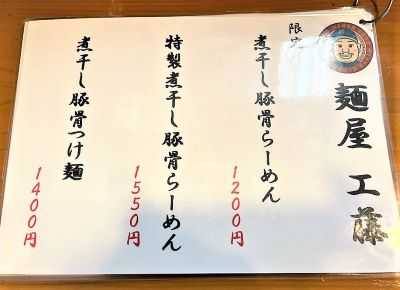 麺屋 工藤
限定
煮干し豚骨らーめん
1200円
特製煮干し豚骨らーめん
1550円
煮干し豚骨つけ麺
1400円